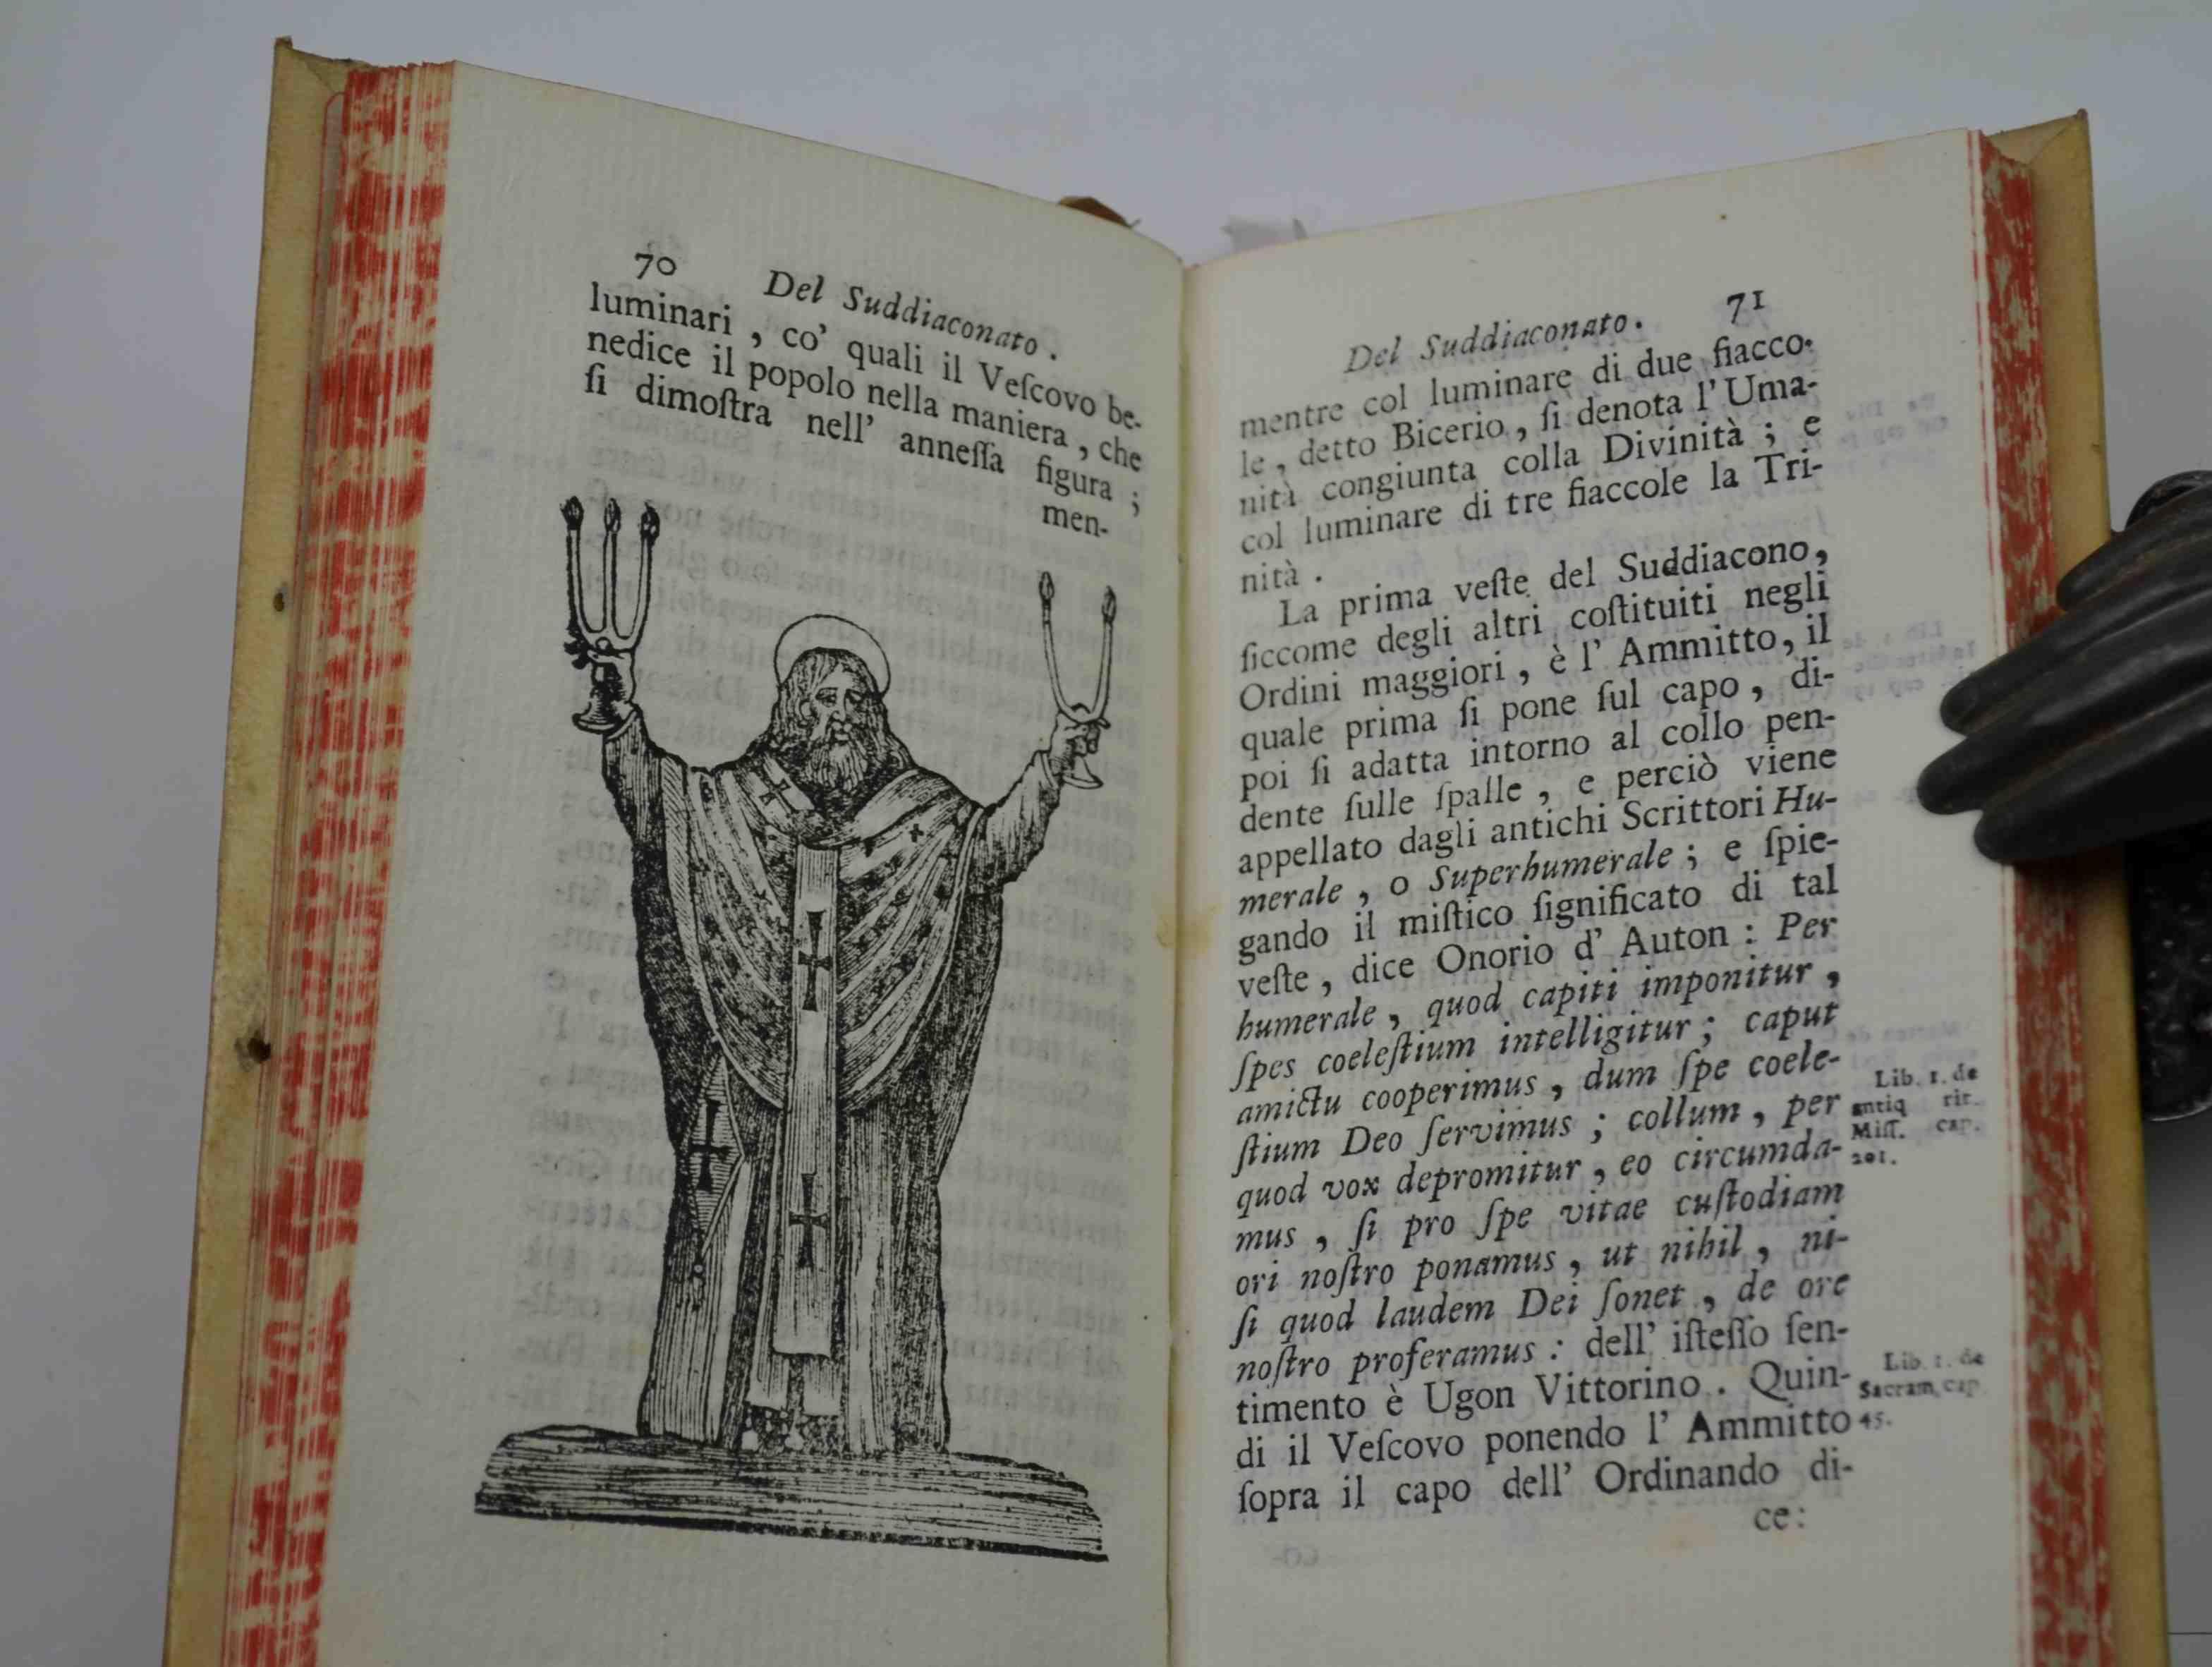 70 Del Suddiaconato .
luminari , co' quali il Veſcovo be-
nedice il popolo nella maniera , che
ſi dimoſtra nell' anneſſa figura ;
men-
Del Suddiaconato. 71
mentre col luminare di due fiacco-
le , detto Bicerio , ſi denota l'Uma-
nità congiunta colla Divinità ; e
col luminare di tre fiaccole la Tri-
nità .
La prima veſte del Suddiacono,
ſiccome degli altri coſtituiti negli
Ordini maggiori , è l' Ammitto, il
quale prima ſi pone ſul capo , di-
poi ſi adatta intorno al collo pen-
dente ſulle ſpalle , e perciò viene
appellato dagli antichi Scrittori Hu-
merale , o Superhumerale ; e ſpie-
gando il miſtico ſignificato di tal
veſte , dice Onorio d' Auton : Per
humerale , quod capiti imponitur ,
ſpes coeleſtium intelligitur ; caput
amictu cooperimus , dum ſpe coele-
ſtium Deo ſervimus ; collum , per
quod vox depromitur , eo circumda-
mus , ſi pro ſpe vitae cuſtodiam
ori noſtro ponamus , ut nihil , ni-
ſi quod laudem Dei ſonet , de ore
noſtro proferamus : dell' iſteſſo ſen-
timento è Ugon Vittorino . Quin-
di il Veſcovo ponendo l' Ammitto
ſopra il capo dell' Ordinando di-
ce :
Lib. 1. de
antiq rit.
Miſſ. cap.
201.
Lib. 1. de
Sacram. cap.
45.